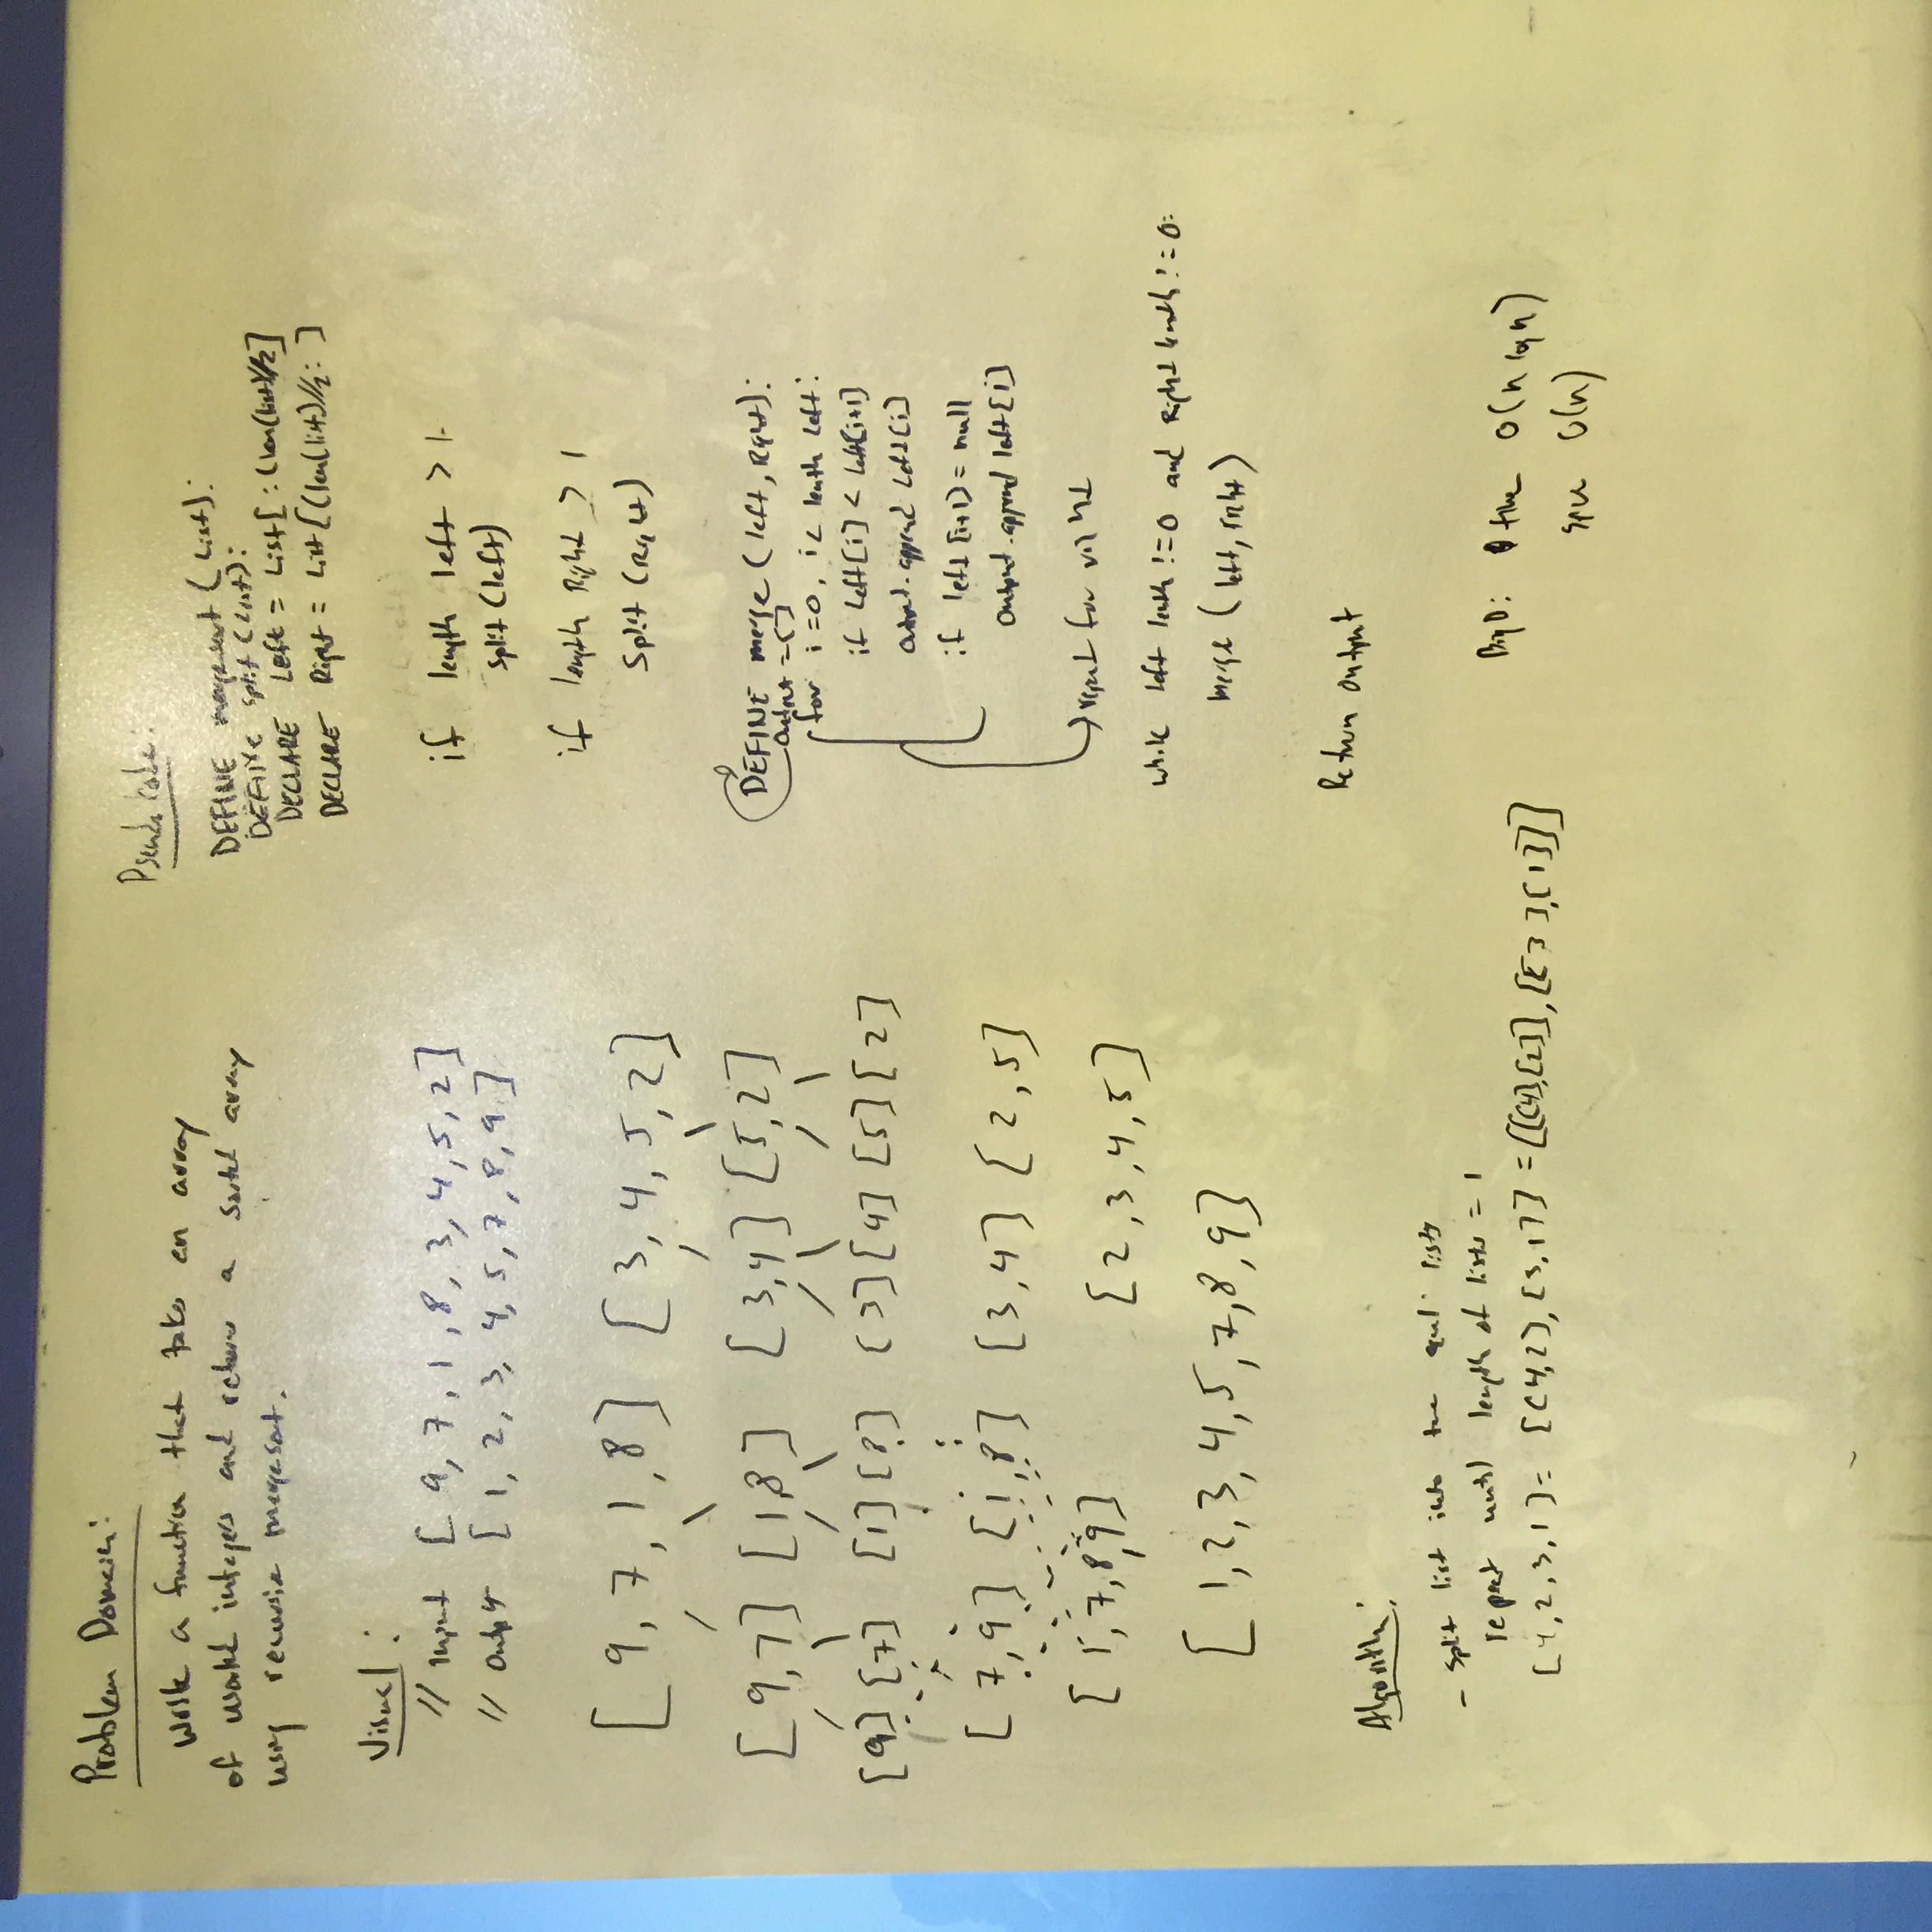 Problem Domain:
Write a function that takes an array
of integers and returns a sorted array
using recursive mergesort.
Visual:
// Input [ 9, 7, 1, 8, 3, 4, 5, 2 ]
// Output [ 1, 2, 3, 4, 5, 7, 8, 9 ]
[ 9, 7, 1, 8 ] [ 3, 4, 5, 2 ]
[ 9, 7 ] [ 1, 8 ] [ 3, 4 ] [ 5, 2 ]
[ 9 ] [ 7 ] [ 1 ] [ 8 ] [ 3 ] [ 4 ] [ 5 ] [ 2 ]
[ 7, 9 ] [ 1, 8 ] [ 3, 4 ] [ 2, 5 ]
[ 1, 7, 8, 9 ] [ 2, 3, 4, 5 ]
[ 1, 2, 3, 4, 5, 7, 8, 9 ]
Algorithm:
- Split list into two equal lists
repeat until length of lists = 1
[4, 2, 3, 1] = [[4, 2], [3, 1]] = [[[4], [2]], [[3], [1]]]
Pseudo Code:
DEFINE mergesort (List):
DEFINE split (List):
DECLARE Left = List[ : (len(list)//2]
DECLARE Right = List[(len(list)//2: ]
if length left > 1
split (left)
if length Right > 1
Split (Right)
DEFINE merge (left, Right):
Output = []
for i = 0, i < length Left:
if Left[i] < Left[i+1]
Output.append Left[i]
if left [i+1] = null
Output.append left[i]
repeat for right
while left length != 0 and Right length != 0:
merge (left, right)
Return Output
Big O: time O(n log n)
space O(n)